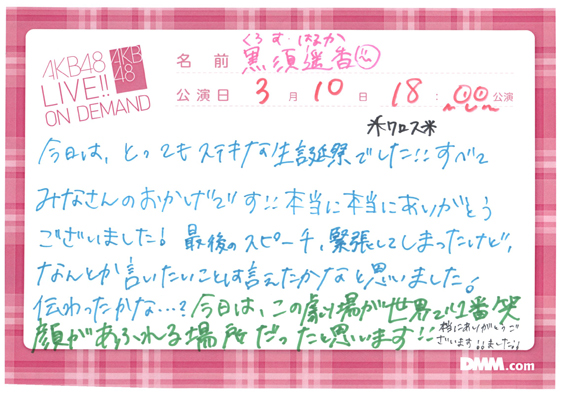 AKB48
LIVE!!
ON DEMAND
AKB
48
くろす はるか
名前 黒須遥香
公演日 3月10日 18:00公演
*クロス*
今日は、とってもステキな生誕祭でした!!すべて
みなさんのおかげです!!本当に本当にありがとう
ございました!最後のスピーチ、緊張してしまったけど、
なんとか言いたいことは言えたかなと思いました。
伝わったかな…?今日は、この劇場が世界で1番笑
顔があふれる場所だったと思います!!
本当にありがとうご
ざいます!!ました!!
DMM.com